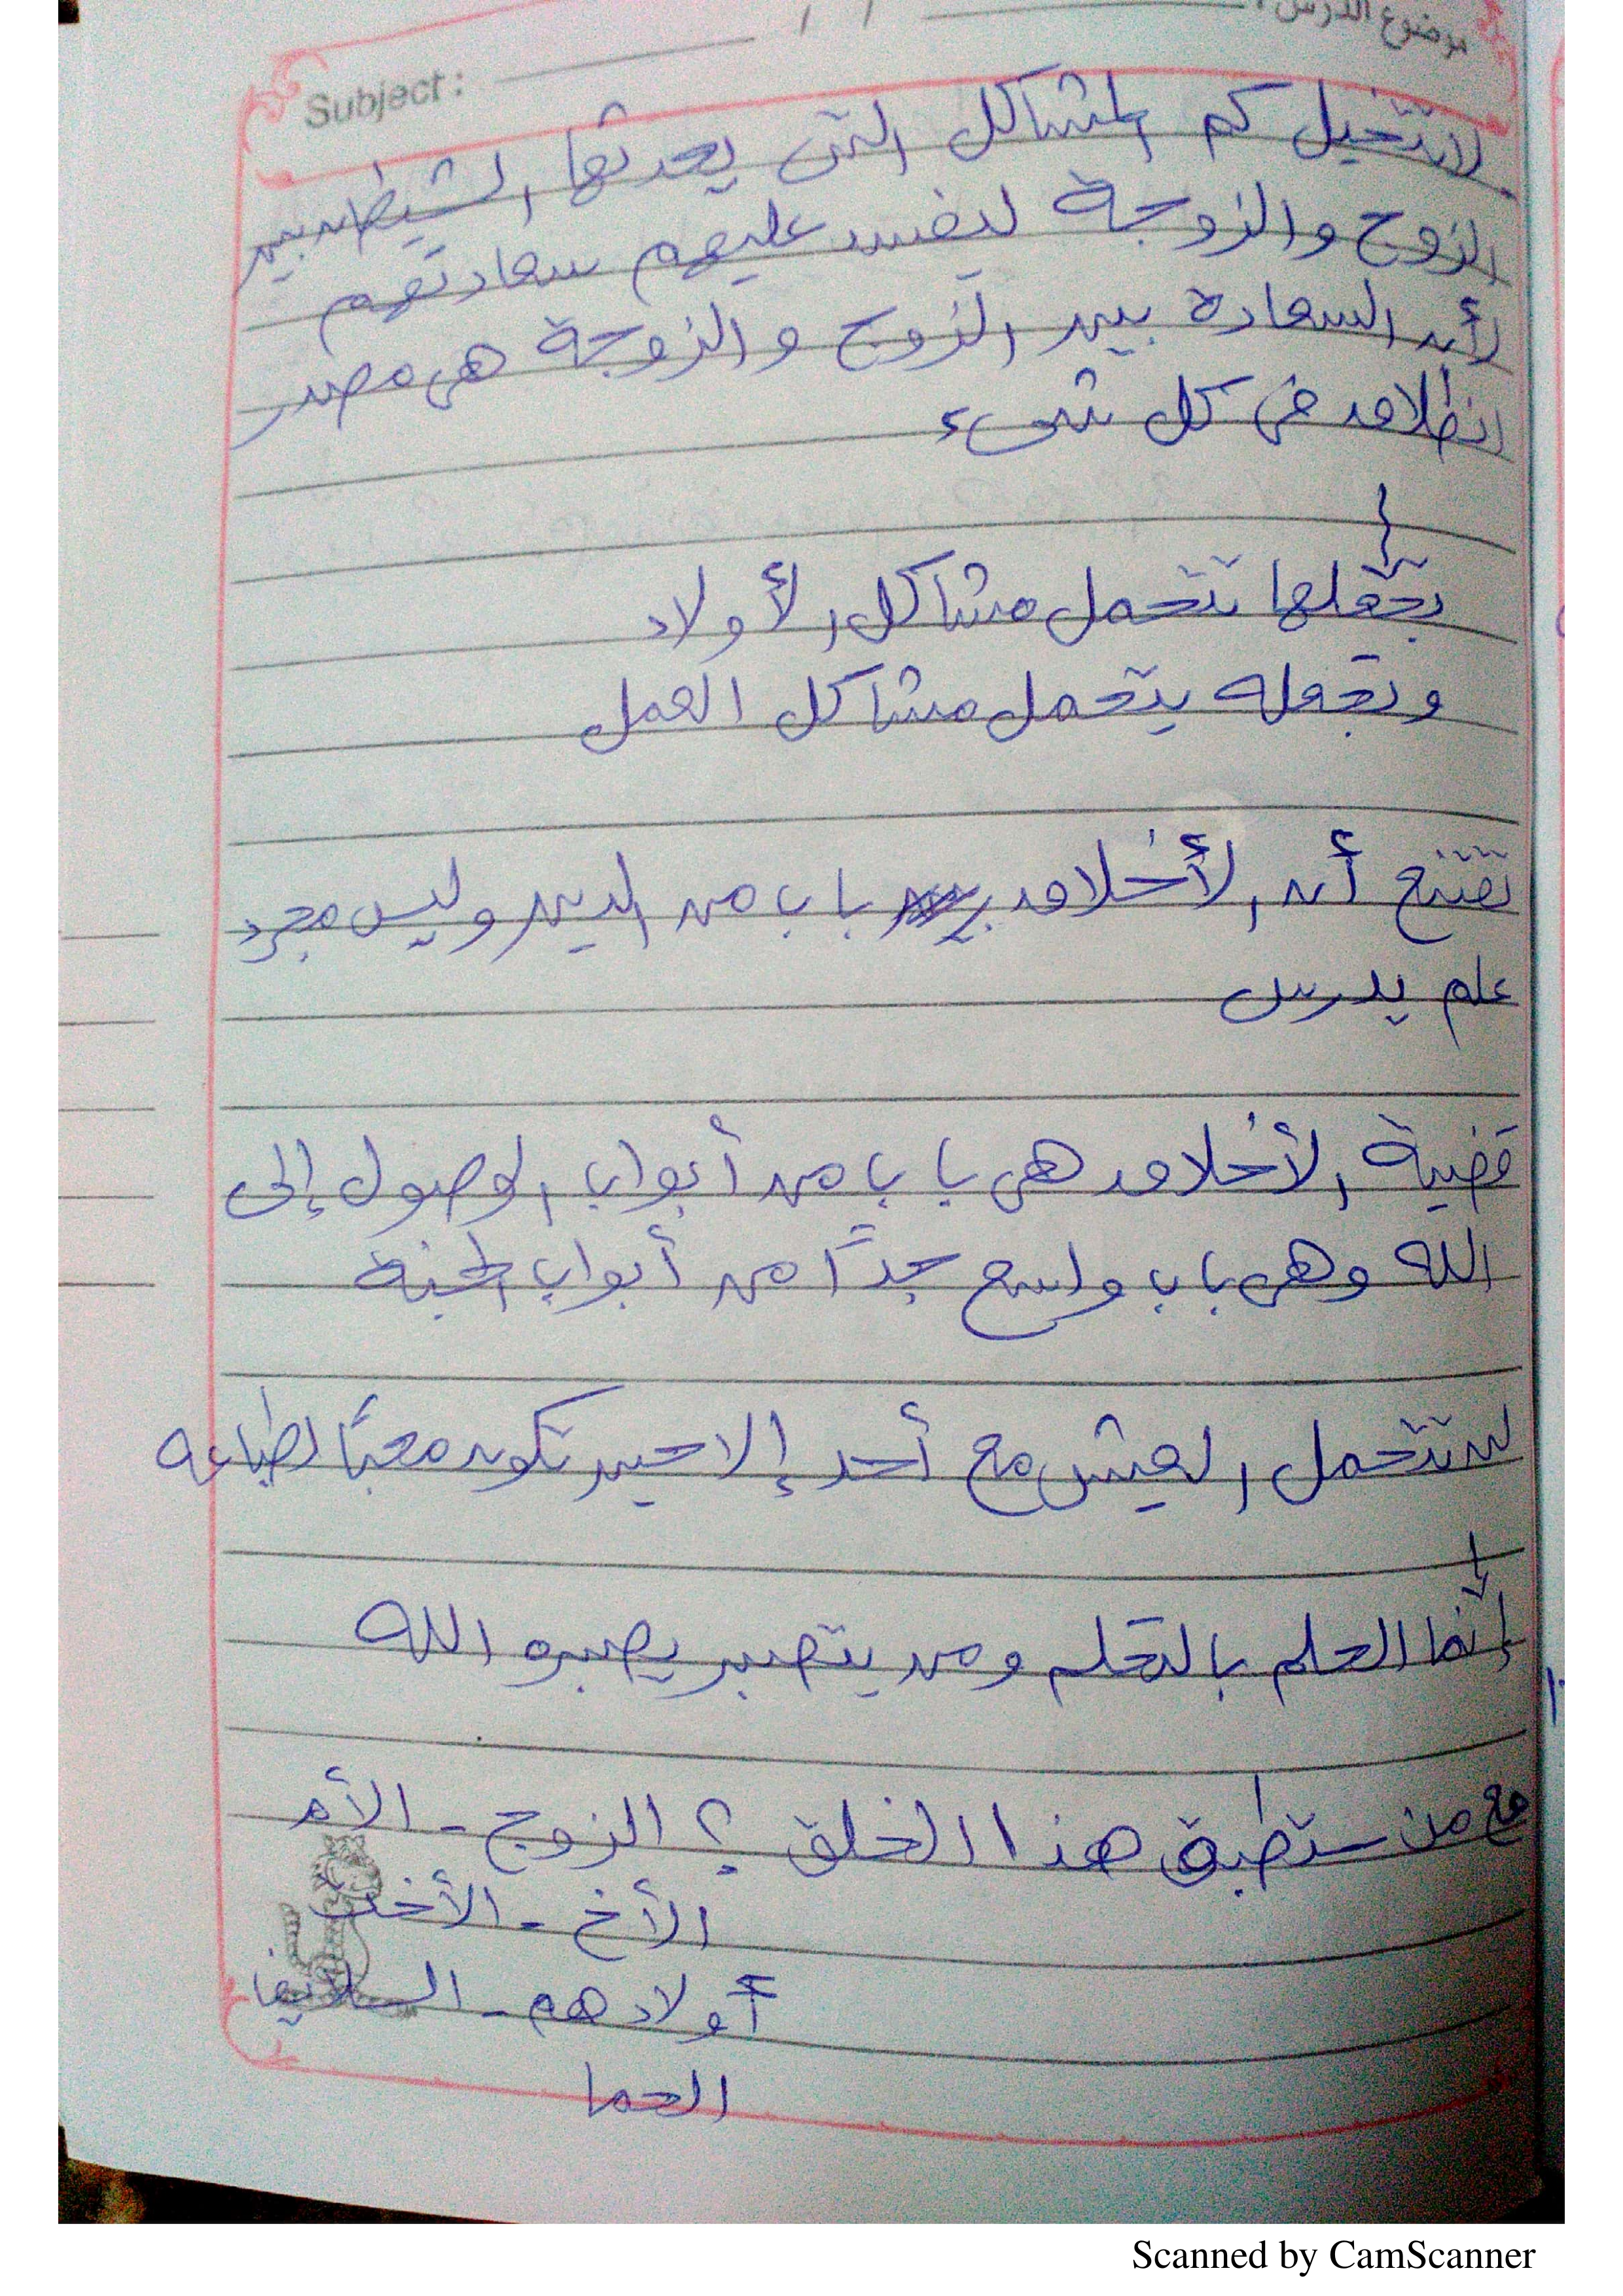 موضوع الدرس :
Subject :
لا تتخيل كم المشاكل التى يحدثها الشيطان بين
الزوج والزوجة ليفسد عليهم سعادتهم
لأن السعادة بين الزوج والزوجة هى مصدر
انطلاق فى كل شىء
تجعلها تتحمل مشاكل الأولاد
وتجعله يتحمل مشاكل العمل
تقتنع أن الأخلاق باب من الدين وليس مجرد
علم يدرس
قضية الأخلاق هى باب من أبواب الوصول إلى
الله وهى باب واسع جدًا من أبواب الجنة
لن تتحمل العيش مع أحد إلا حين تكون محبًا لطباعه
إنما الحلم بالتحلم ومن يتصبر يصبره الله
مع من ستطبق هذا الخلق ؟ الزوج - الأم
الأخ - الأخت
أولادهم - السلايف
الحما
Scanned by CamScanner